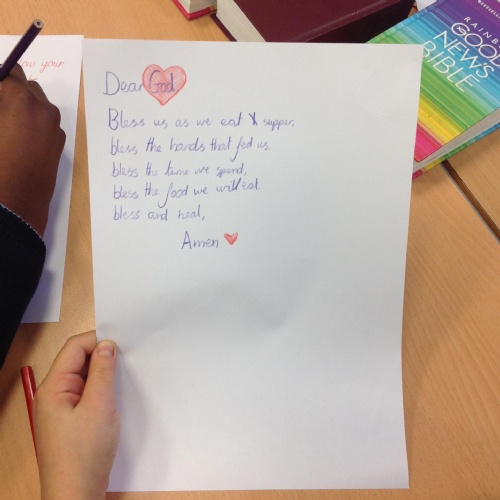 Dear God
Bless us as we eat supper,
bless the hands that fed us.
bless the time we spend,
bless the food we will eat.
bless and heal,
Amen
RAINBOW
GOOD
NEWS
BIBLE
your